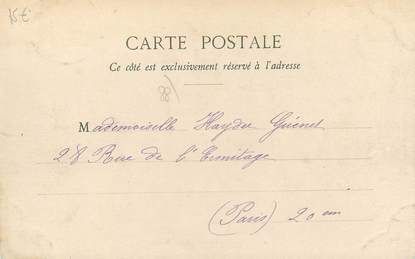 15€
CARTE POSTALE
Ce côté est exclusivement réservé à l'adresse
88
Mademoiselle Haydée Guénet
28 Rue de l'Ermitage
(Paris) 20 em